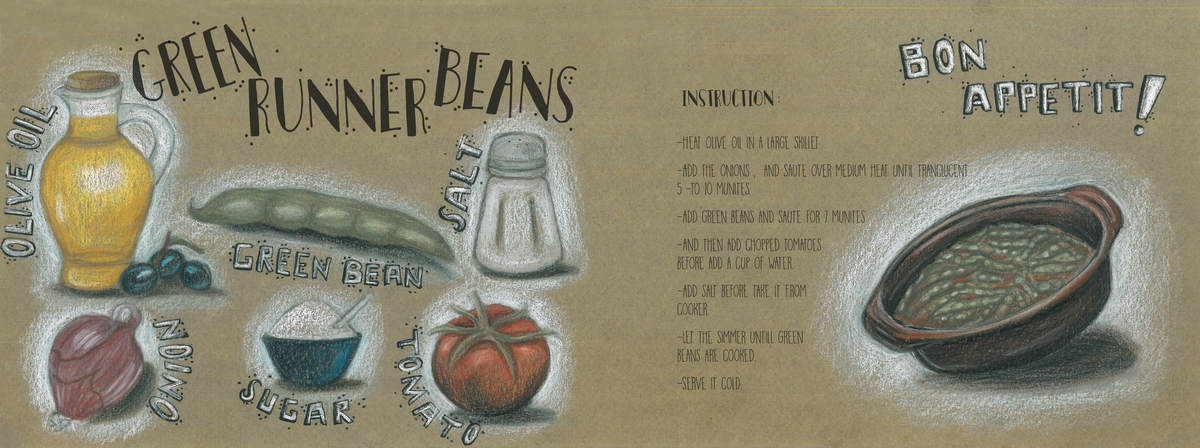 GREEN
RUNNER
BEANS
OLIVE OIL
SALT
GREEN BEAN
ONION
SUGAR
TOMATO
BON
APPETIT!
INSTRUCTION:
-HEAT OLIVE OIL IN A LARGE SKILLET
-ADD THE ONIONS , AND SAUTE OVER MEDIUM HEAT UNTIL TRANQLUCENT
5 -TO 10 MUNITES.
-ADD GREEN BEANS AND SAUTE FOR 7 MUNITES
-AND THEN ADD CHOPPED TOMATOES
BEFORE ADD A CUP OF WATER.
-ADD SALT BEFORE TAKE IT FROM
COOKER.
-LET THE SIMMER UNTILL GREEN
BEANS ARE COOKED.
-SERVE IT COLD.